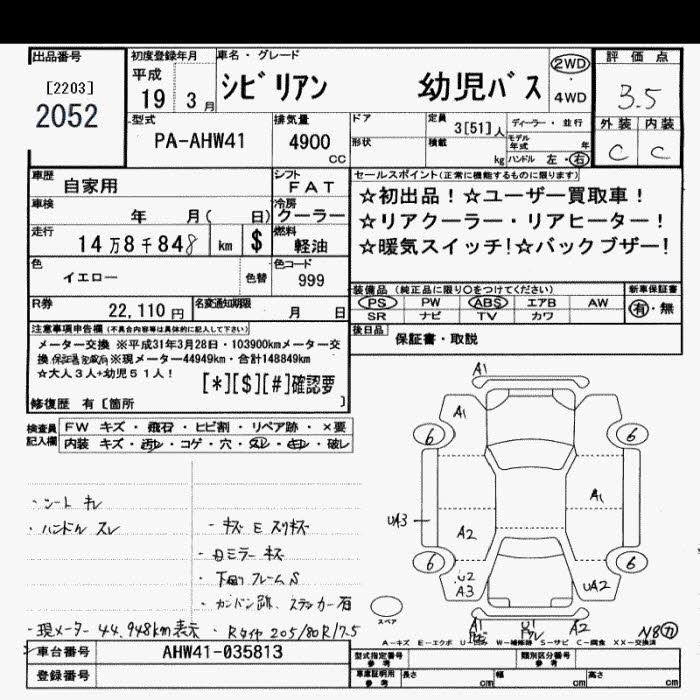 出品番号
[2203]
2052
初度登録年月
平成
19 3月
車名・グレード
シビリアン 幼児バス
2WD
4WD
評価点
3.5
外装 内装
C C
型式
PA-AHW41
排気量
4900
CC
ドア
形状
定員 3[51]人
積載 kg
ディーラー・並行
モデル年式 年
ハンドル 左・右
車歴
自家用
シフト
FAT
車検
年 月( 日)
冷房
クーラー
走行
14万8千848 km $
燃料
軽油
色
イエロー
色替
色コード
999
R券
22,110円
名変通知期限
月 日
セールスポイント(正常に機能するものに限ります)
☆初出品!☆ユーザー買取車!
☆リアクーラー・リアヒーター!
☆暖気スイッチ!☆バックブザー!
装備品(純正品に限り○をつけてください)
新車保証書
PS PW ABS エアB AW
SR ナビ TV カワ
有・無
後日品
保証書・取説
注意事項申告欄(不具合内容等は具体的に記入して下さい)
メーター交換 ※平成31年3月28日・103900kmメーター交
換(保証書記載有)※現メーター44949km・合計148849km
☆大人3人+幼児51人!
[*][$][#]確認要
修復歴 有〔箇所 〕
検査員
記入欄
FW キズ・飛石・ヒビ割・リペア跡・×要
内装 キズ・汚レ・コゲ・穴・スレ・キレ・破レ
・シート キレ
・ハンドル スレ
・キズ E スリキズ
・Dミラー キズ
・下回リ フレーム S
・カンバン跡、ステッカー有
・現メーター 44,948km表示
・Rタイヤ 205/80R17.5
A1
A1
6
6
A1
UA3
A2
6
6
U2
A3
UA2
スペア
A1
U1
A2
A-キズ E-エクボ U-凹み W-補修跡 S-サビ C-腐食 XX-交換済
車台番号
AHW41-035813
登録番号
型式指定番号
参考
類別区分番号
参考
車庫証明用
参考
長さ cm
幅 cm
高さ cm